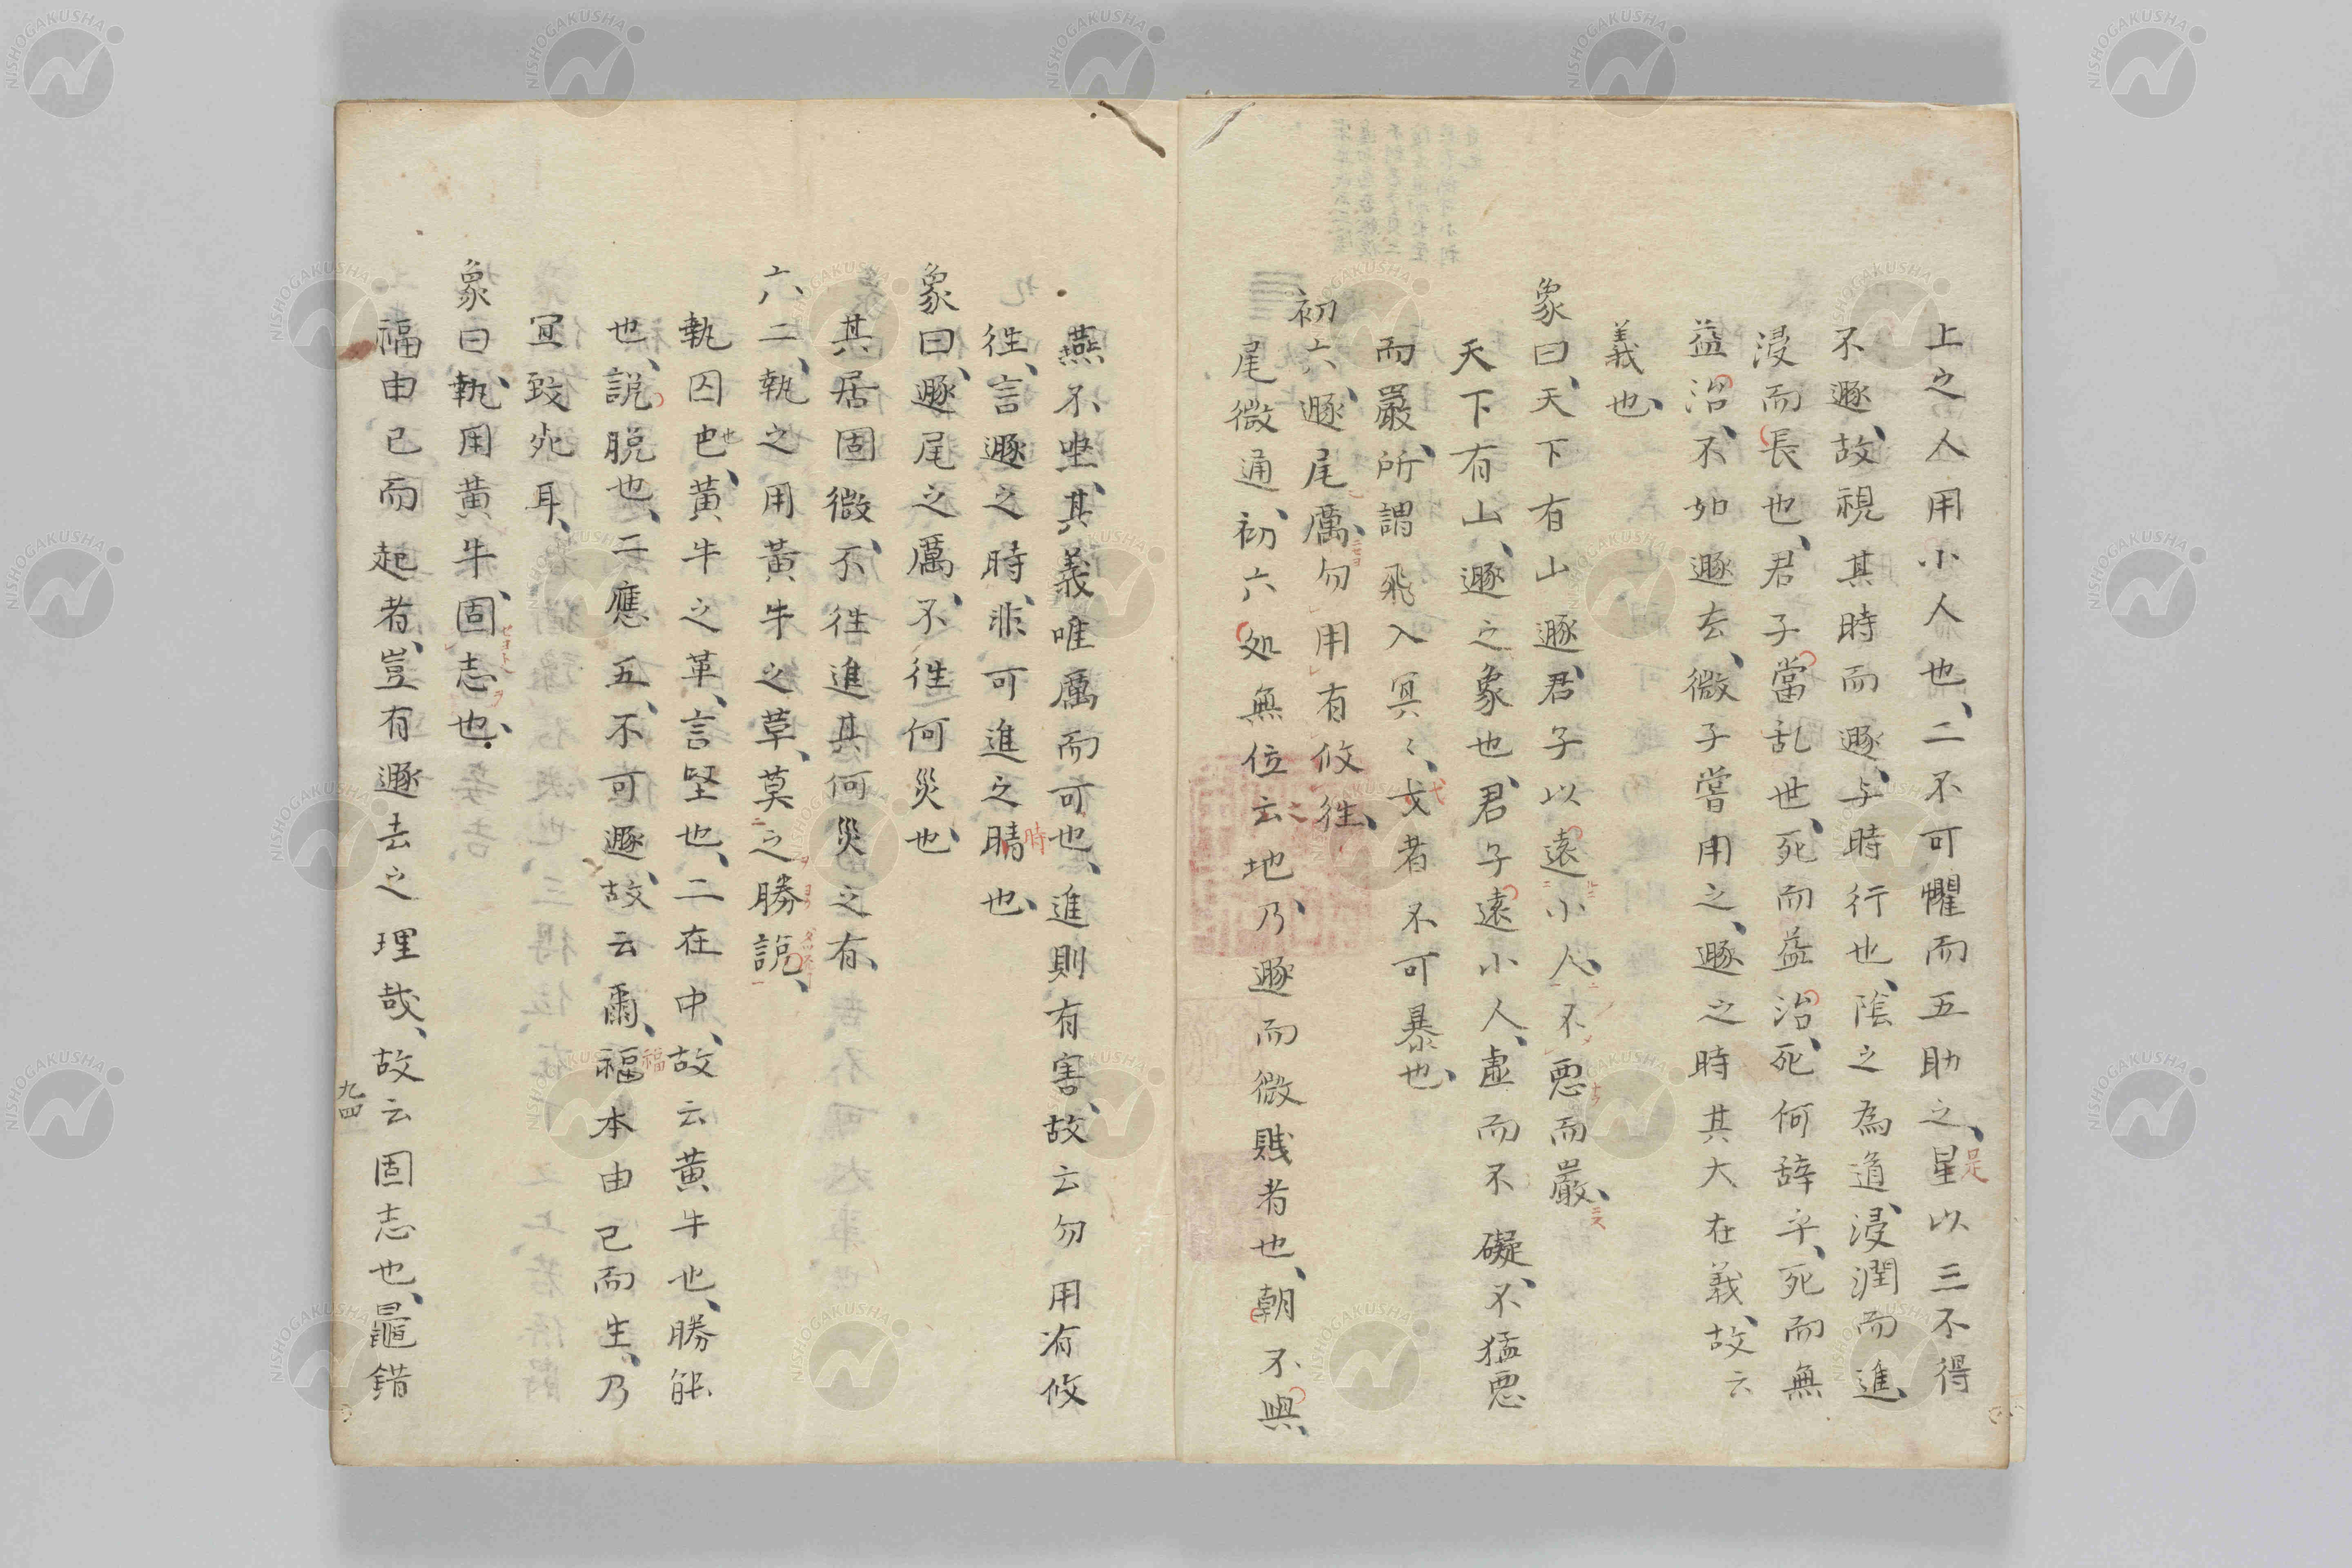 上之人用小人也、二不可懼而五助之、星以三不得
不遯、故視其時而遯、与時行也、陰之為道、浸潤而進、
浸而長也、君子當乱世、死而益治、死何辞乎、死而無
益治、不如遯去、微子嘗用之、遯之時其大在義、故云
義也、
象曰、天下有山遯、君子以遠小人、不悪而嚴、
天下有山、遯之象也、君子遠小人、虚而不礙、不猛悪
而嚴、所謂飛入冥〻、弋者不可暴也、
初六、遯尾厲、勿用有攸往、
尾微通、初六処無位之地、乃遯而微賤者也、朝不與、
燕不坐、其義唯厲而可也、進則有害、故云勿用有攸
往、言遯之時、非可進之晴也、
象曰、遯尾之厲、不往何災也、
其居固微、不往進其何災之有、
六二、執之用黄牛之革、莫之勝説、
執囚也、黄牛之革、言堅也、二在中、故云黄牛也、勝能
也、説脱也、二應五、不可遯、故云爾、福本由己而生、乃
冝致死耳、
象曰、執用黄牛、固志也、
福由己而起者、豈有遯去之理哉、故云固志也、鼂錯
是
弋
時
也
福
九四
NISHOGAKUSHA